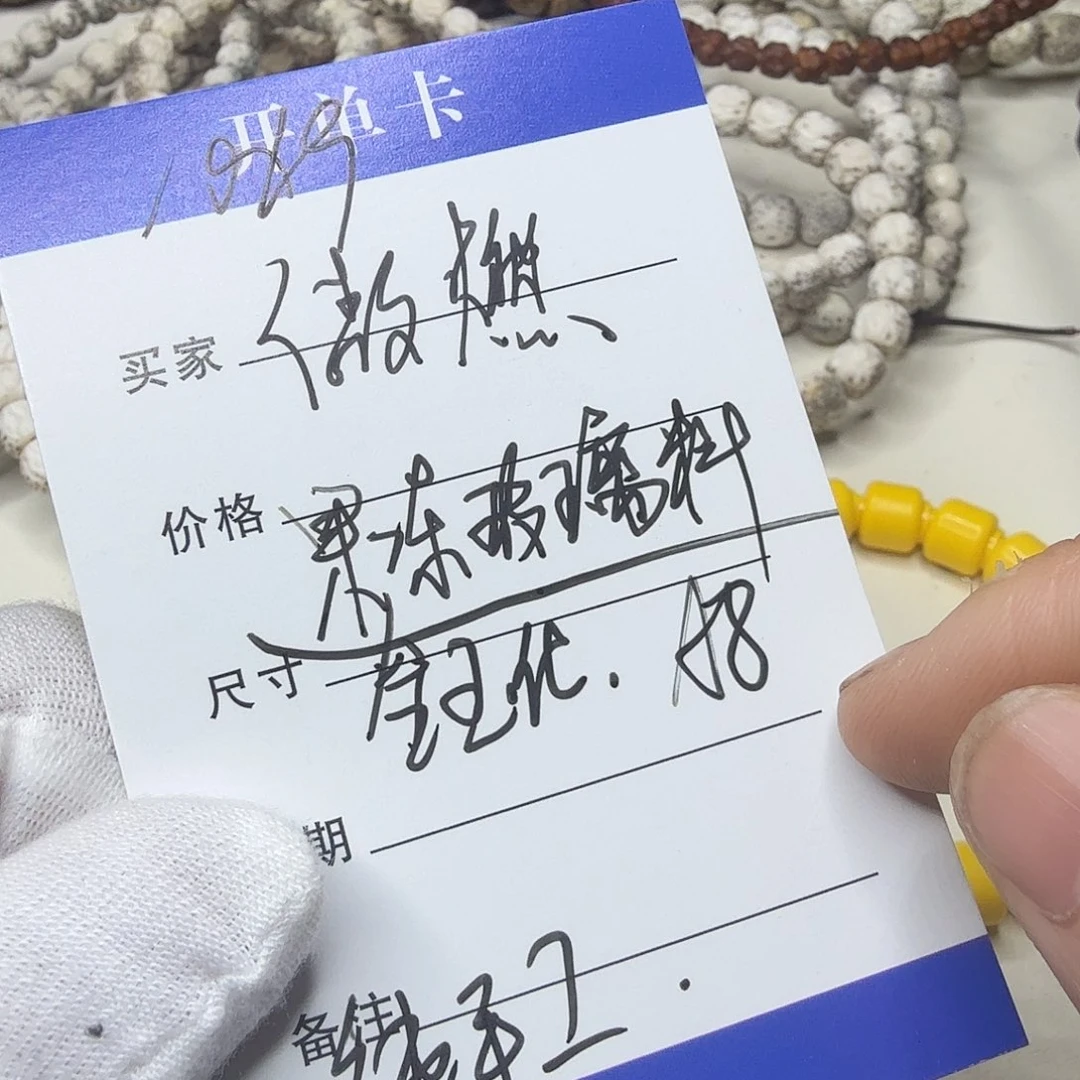 开单卡
1989
买家 傲燃
价格 果冻玻璃料
尺寸 全王化. A8
期
备注 纯手工.